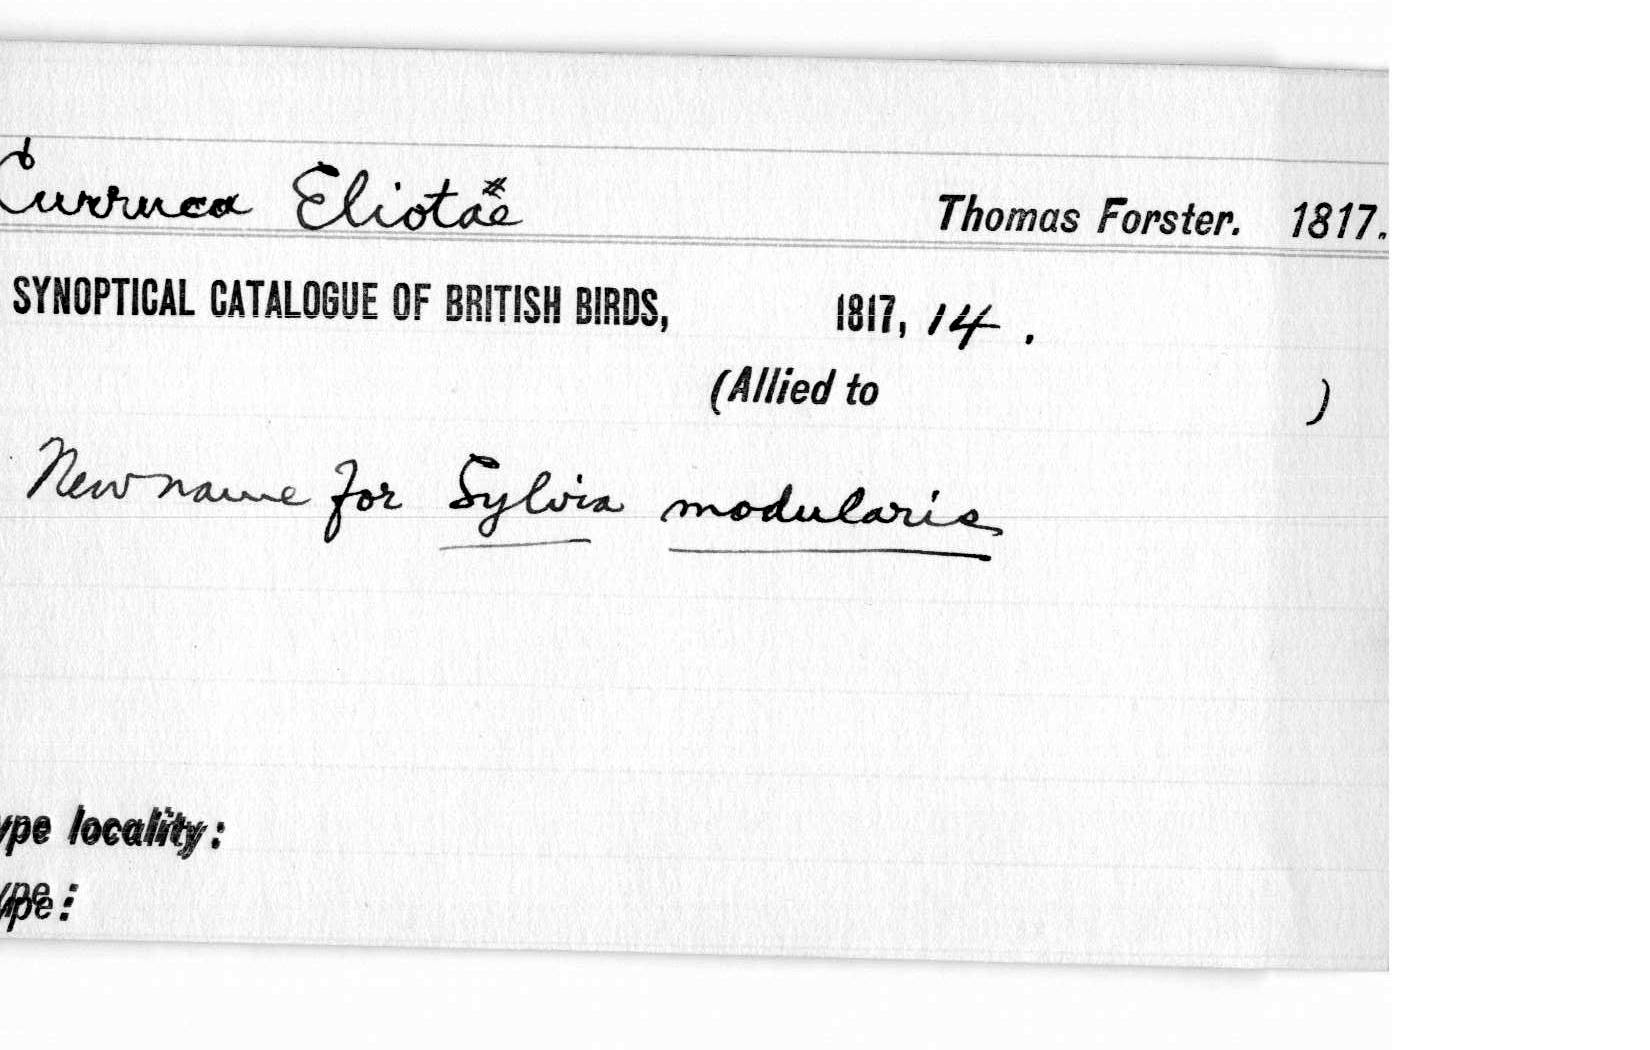 Curruca Eliotäe Thomas Forster. 1817.
SYNOPTICAL CATALOGUE OF BRITISH BIRDS, 1817, 14.
(Allied to )
New name for Sylvia modularis
ype locality:
ype: